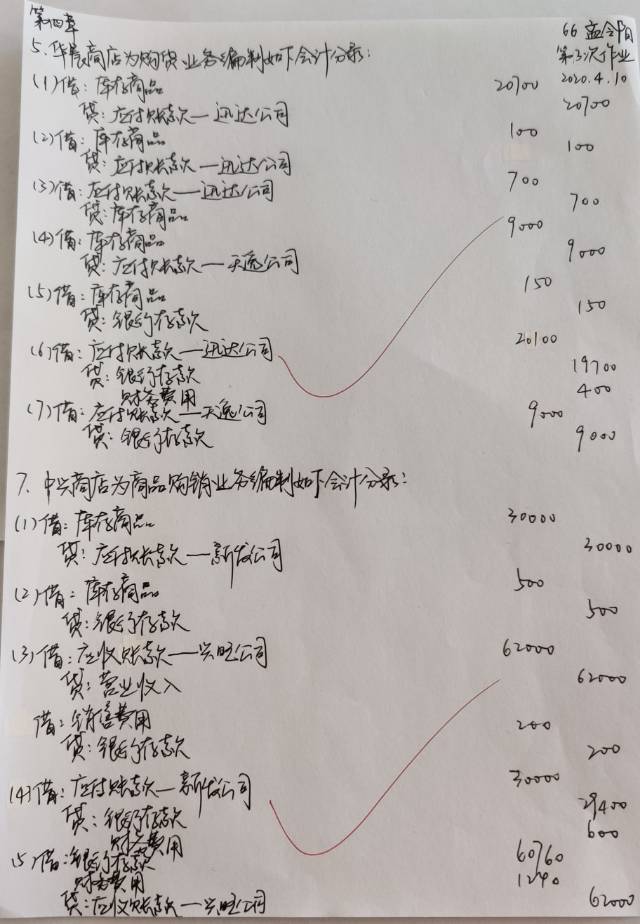 第四章
66 孟令阳
5. 华晨商店为购货业务编制如下会计分录：
第3次作业
2020.4.10
(1)借：库存商品 20700
贷：应付账款—迅达公司 20700
(2)借：库存商品 100
贷：应付账款—迅达公司 100
(3)借：应付账款—迅达公司 700
贷：库存商品 700
(4)借：库存商品 9000
贷：应付账款—天逸公司 9000
(5)借：库存商品 150
贷：银行存款 150
(6)借：应付账款—迅达公司 20100
贷：银行存款 19700
财务费用 400
(7)借：应付账款—天逸公司 9000
贷：银行存款 9000
7. 中兴商店为商品购销业务编制如下会计分录：
(1)借：库存商品 30000
贷：应付账款—新发公司 30000
(2)借：库存商品 500
贷：银行存款 500
(3)借：应收账款—兴旺公司 62000
贷：营业收入 62000
借：销售费用 200
贷：银行存款 200
(4)借：应付账款—新发公司 30000
贷：银行存款 29400
财务费用 600
(5)借：银行存款 60760
财务费用 1240
贷：应收账款—兴旺公司 62000